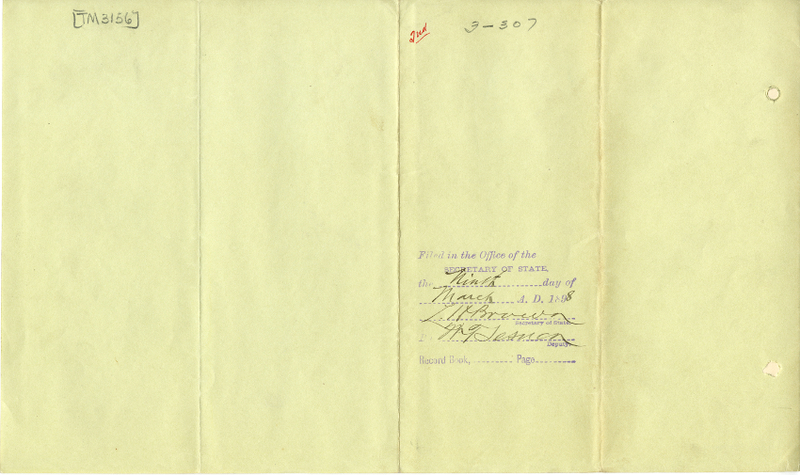 [TM3156]
2nd
3-307
Filed in the Office of the
SECRETARY OF STATE,
the Ninth day of
March A. D. 1898
L. H. Brown
Secretary of State.
Deputy.
Record Book, Page